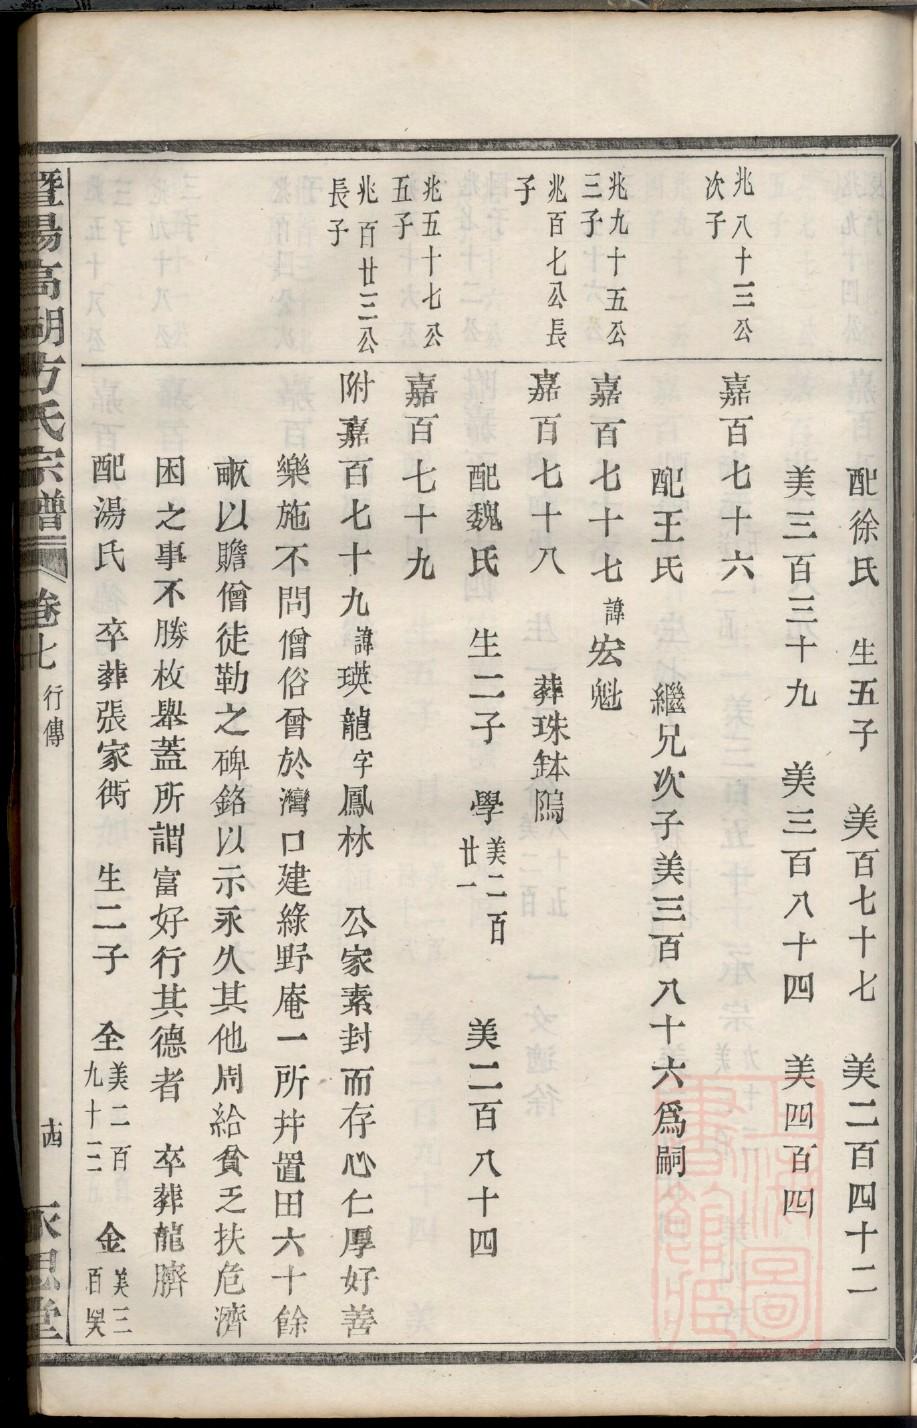 配徐氏 生五子 美百七十七 美二百四十二
美三百三十九 美三百八十四 美四百四
兆八十三公
次子
嘉百七十六
配王氏 繼兄次子美三百八十六爲嗣
兆九十五公
三子
嘉百七十七諱宏魁
兆百七公長
子
嘉百七十八 葬珠缽隖
配魏氏 生二子 學美二百廿一 美二百八十四
兆五十七公
五子
嘉百七十九
兆百廿三公
長子
附嘉百七十九諱瑛龍字鳳林 公家素封而存心仁厚好善
樂施不問僧俗曾於灣口建綠野庵一所幷置田六十餘
畝以贍僧徒勒之碑銘以示永久其他周給貧乏扶危濟
困之事不勝枚舉蓋所謂富好行其德者 卒葬龍臍
配湯氏 卒葬張家衖 生二子 全美二百九十三 金美三百
暨陽高湖方氏宗譜 卷七 行傳 永思堂